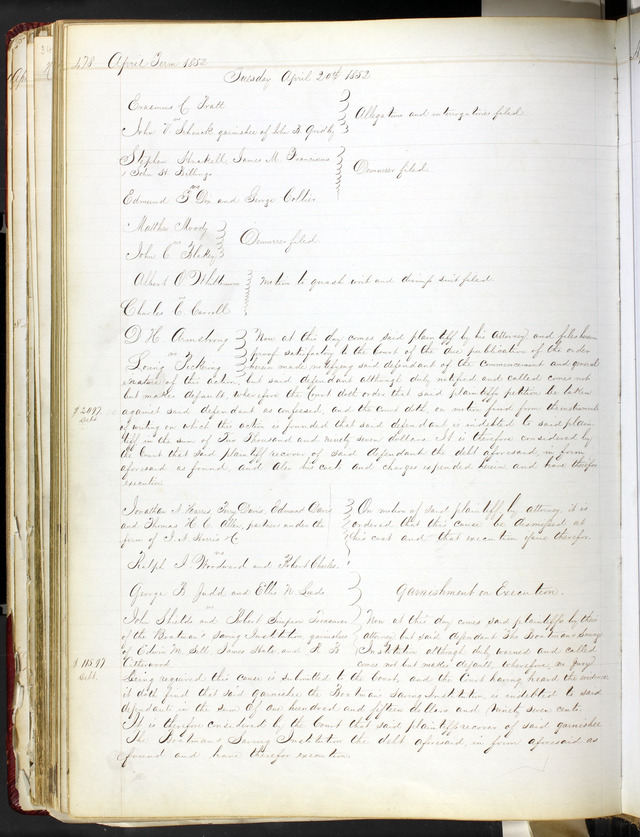 478 April Term 1852
Tuesday April 20th 1852
Erasmus C Pratt
vs
John V Schenck garnishee of John B
Allegations and interrogatories filed
Stephen Haskell, James M. Franciscus
& John H. Billings
vs
Edmund F Dix and George Collier
Demurrer filed
Matthew Moody
vs
John C Blakey
Demurrer filed
Albert O Whittemore
vs
Charles C Carroll
Motion to quash writ and dismiss suit filed
D. H. Armstrong
vs
Loring Pickering
Now at this day comes said plaintiff by his Attorney, and files herein
proof satisfactory to the Court of the due publication of the order
herein made notifying said defendant of the commencement and general
nature of this action, but said defendant although duly notified and called comes not
but makes default, wherefore the Court doth order that said plaintiffs petition be taken
$2097.
Debt
against said defendant as confessed, and the Court doth, on motion find from the instrument
of writing on which the action is founded that said defendant is indebted to said plain-
tiff in the sum of Two Thousand and ninety seven dollars. It is therefore considered by
the Court that said plaintiff recover of said defendant the debt aforesaid, in form
aforesaid as found, and also his cost and charges expended herein and have therefor
execution
Jonathan A Harris, Davis, Edward Davis
and Thomas H. C. Allen, partners under the
firm of J. A Harris & Co
vs
Ralph I Woodward and Robert Charles
On motion of said plaintiff, by attorney, it is
ordered that this cause be dismissed at
his cost and that execution issue therefor
George B Judd and Ellis N. Leeds
vs
John Shields and Robert Simpson Treasurer
of the Boatman's Saving Institution garnishees
of Edwin M. Sill, James and
Otterwood
Garnishment on Execution.
Now at this day comes said plaintiffs by their
attorney but said defendant The Boatmans Saving
Institution although duly warned and called
comes not but makes default, wherefore, no jury
$115.97
Debt.
being required this cause is submitted to the Court, and the Court having heard the evidence
it doth find that said garnishee the Boatmans Saving Institution is indebted to said
defendant in the sum of one hundred and fifteen dollars and Ninety seven cents.
It is therefore considered by the Court that said plaintiffs recover of said garnishee
The Boatmans Saving Institution the debt aforesaid, in form aforesaid as
found and have therefor execution.